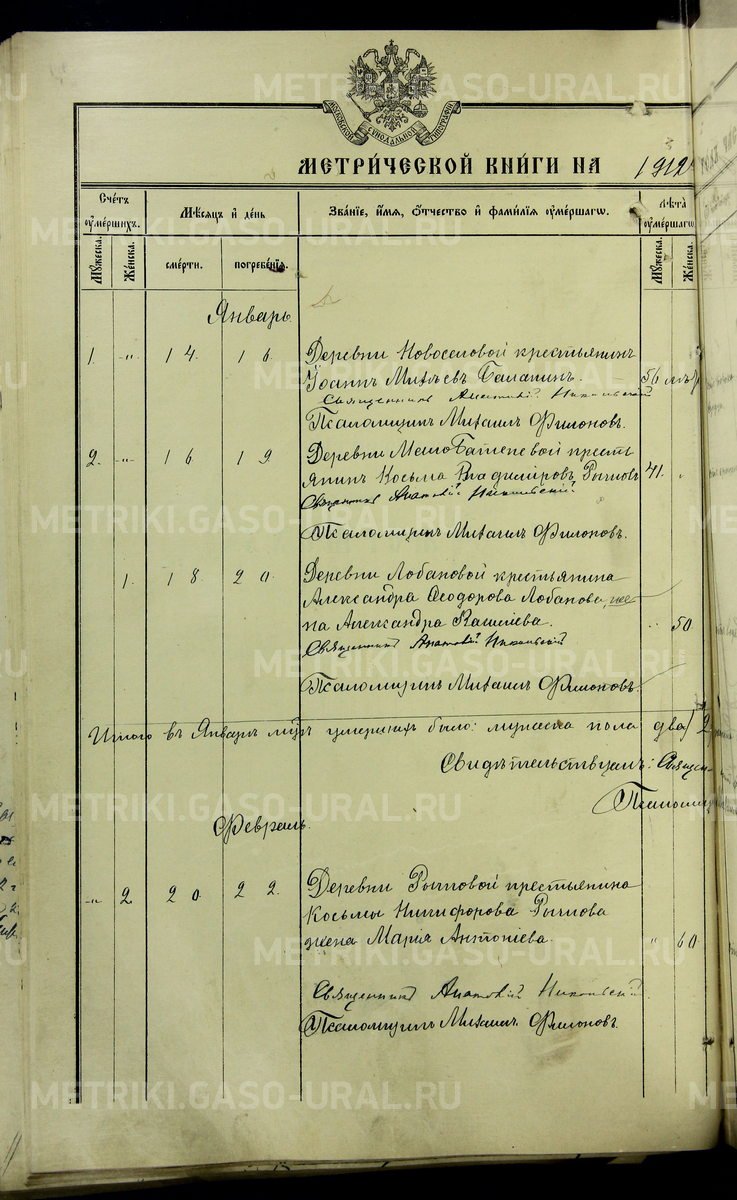 METRIKI.GASO-URAL.RU
МОСКОВСКОЙ СѴНОДАЛЬНОЙ ТИПОГРАФІИ
МЕТРИ́ЧЕСКОЙ КНИ́ГИ НА 1912
Сче́тъ ᲂу҆ме́ршихъ.
Мѣ́сяцъ и҆ де́нь
Зва́нїе, и҆́мя, ѻ҆́тчество и҆ фами́лїя ᲂу҆ме́ршагѡ.
Лѣ́та ᲂу҆ме́ршагѡ
Мꙋ́жеска.
Же́нска.
сме́рти.
погребе́нїя.
Мꙋ́жеска.
Же́нска.
Январь.
1. „ 14. 16. Деревни Новоселовой крестьянинъ
Іоаннъ Михѣевъ Балакинъ. 56 лѣтъ
Священникъ Анатолій Никольскій
Псаломщикъ Михаилъ Филоновъ.
2. „ 16 19 Деревни крестья
янинъ Косьма Владиміровъ Рычковъ 41.
Священникъ Анатолій Никольскій
Псаломщикъ Михаилъ Филоновъ.
1. 18. 20. Деревни Лобановой крестьянина
Александра Ѳеодорова Лобанова, же
на Александра „ 50
Священникъ Анатолій Никольскій
Псаломщикъ Михаилъ Филоновъ.
Итого въ Январѣ м-цѣ умершихъ было: мужеска пола два/2
Свидѣтельствуемъ: Священ-
Псаломщ
Февраль.
„ 2 20. 22. Деревни Рычковой крестьянина
Косьмы Никифорова Рычкова
жена Марія Антоніева. „ 60
Священникъ Анатолій Никольскій.
Псаломщикъ Михаилъ Филоновъ.